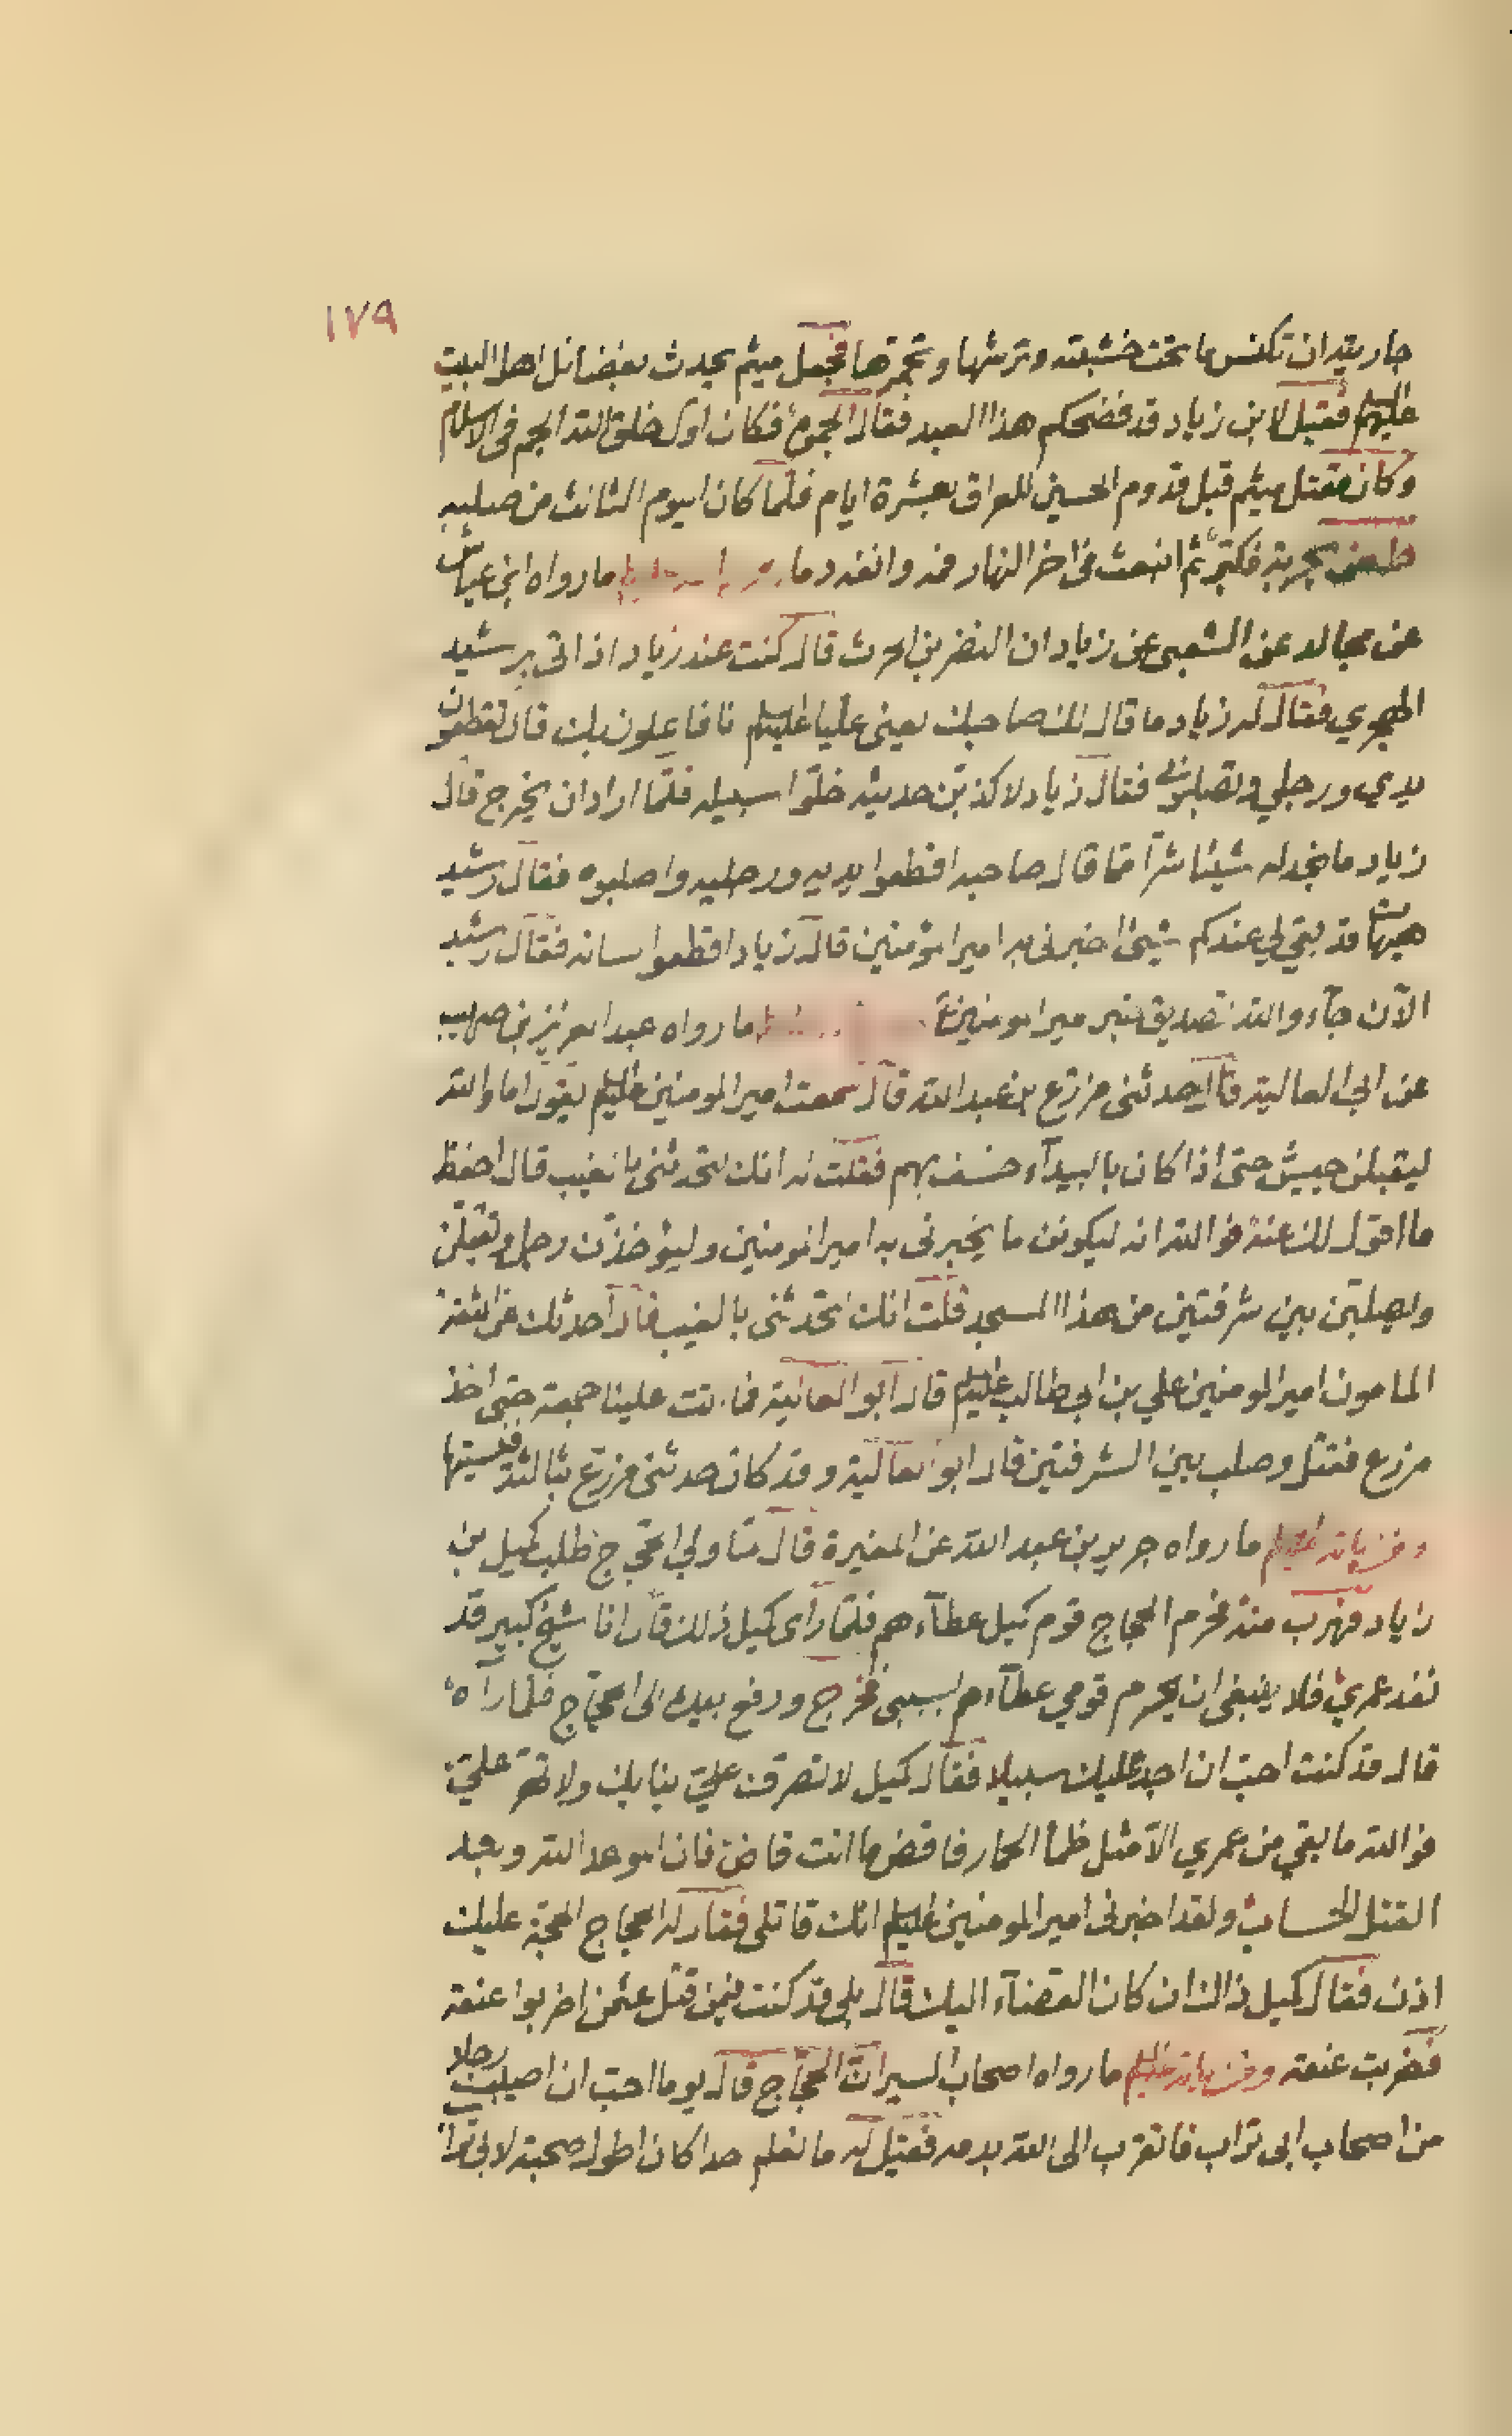 ١٧٩
جاريته ان تكنس ما تحت خشبته وترشها وتجمرها فجعل ميثم يحدث بفضائل اهل البيت
عليهم فقيل لابن زياد قد فضحكم هذا العبد فقال الجموه فكان اول خلق الله الجم فى الاسلام
وكان مقتل ميثم قبل قدوم الحسين للعراق بعشرة ايام فلما كان اليوم الثالث من صلبه
طعن بحربة فكبر ثم انبعث فى اخر النهار فمه وانفه دما ما رواه ابن عياش
عن مجالد عن الشعبى عن زياد ان النضر بن الحرث قال كنت عند زياد اذ اتى برشيد
الهجري فقال له زياد ما قال لك صاحبك يعنى عليا عليه السلم انا فاعلون بك قال تقطعون
يدي ورجلي وتصلبونى فقال زياد لاكذبن حديثه خلوا سبيله فلما اراد ان يخرج قال
زياد ما نجد له شيئا شرا مما قال صاحبه اقطعوا يديه ورجليه واصلبوه فقال رشيد
هيهات قد بقي لي عندكم شيئ اخبرنى به امير المؤمنين قال زياد اقطعوا لسانه فقال رشيد
الآن جآء والله تصديق خبر امير المومنين ما رواه عبد العزيز بن صهيب
عن ابى العالية قال حدثنى مزرع بن عبد الله قال سمعت امير المومنين عليه السلم يقول اما والله
ليقبلن جيش حتى اذا كان بالبيدآء خسف بهم فقلت له انك لتحدثنى بالغيب قال احفظ
ما اقول لك عنه فوالله انه ليكونن ما يخبرنى به امير المومنين وليؤخذن رجل وليقتلن
وليصلبن بين شرفتين من هذا المسجد قلت انك لتحدثنى بالغيب قال حدثك عن الثقة
المامون امير المومنين علي بن ابى طالب عليه السلم قال ابو العالية فما اتت علينا جمعة حتى اخذ
مزرع فقتل وصلب بين الشرفتين قال ابو العالية وقد كان حدثنى مزرع بثالثة فنسيتها
ومن اياته عليه السلم ما رواه جرير بن عبد الله عن المغيرة قال لما ولي الحجاج طلب كميل بن
زياد فهرب منه فحرم الحجاج قوم كميل عطآءهم فلما راى كميل ذلك قال انا شيخ كبير قد
نفد عمري فلا ينبغى ان يحرم قومي عطآءهم بسببى فخرج ودفع بيده الى الحجاج فلما رآه
قال قد كنت احب ان اجد عليك سبيلا فقال كميل لا تصرفن علي بنابك ولا تهر علي
فوالله ما بقي من عمري الا مثل ظمأ الحمار فاقض ما انت قاض فان الموعد الله وبعد
القتل الحساب ولقد اخبرنى امير المومنين عليه السلم انك قاتلى فقال له الحجاج الحجة عليك
اذن فقال كميل ذاك ان كان القضآء اليك قال بلى قد كنت فيمن قتل عثمن اضربوا عنقه
فضربت عنقه ومن اياته عليه السلم ما رواه اصحاب السير ان الحجاج قال يوما احب ان اصيب رجلا
من اصحاب ابى تراب فاتقرب الى الله بدمه فقيل له ما نعلم احدا كان اطول صحبة لابى تراب